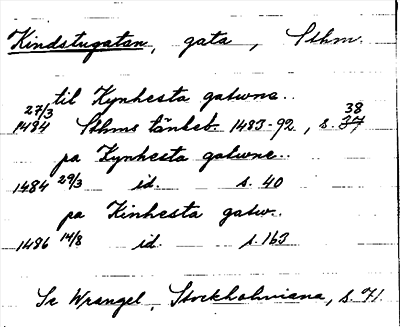 Kindstugatan, gata, Sthm.
til Kynhesta gatwna..
27/3 38
1484 Sthms tänkeb. 1483-92, s. 37
pa Kynhesta gatwne..
1484 29/3 id. s. 40
pa Kinhesta gatw..
1486 14/8 id. s. 163
Se Wrangel, Stockholmiana, s. 71.